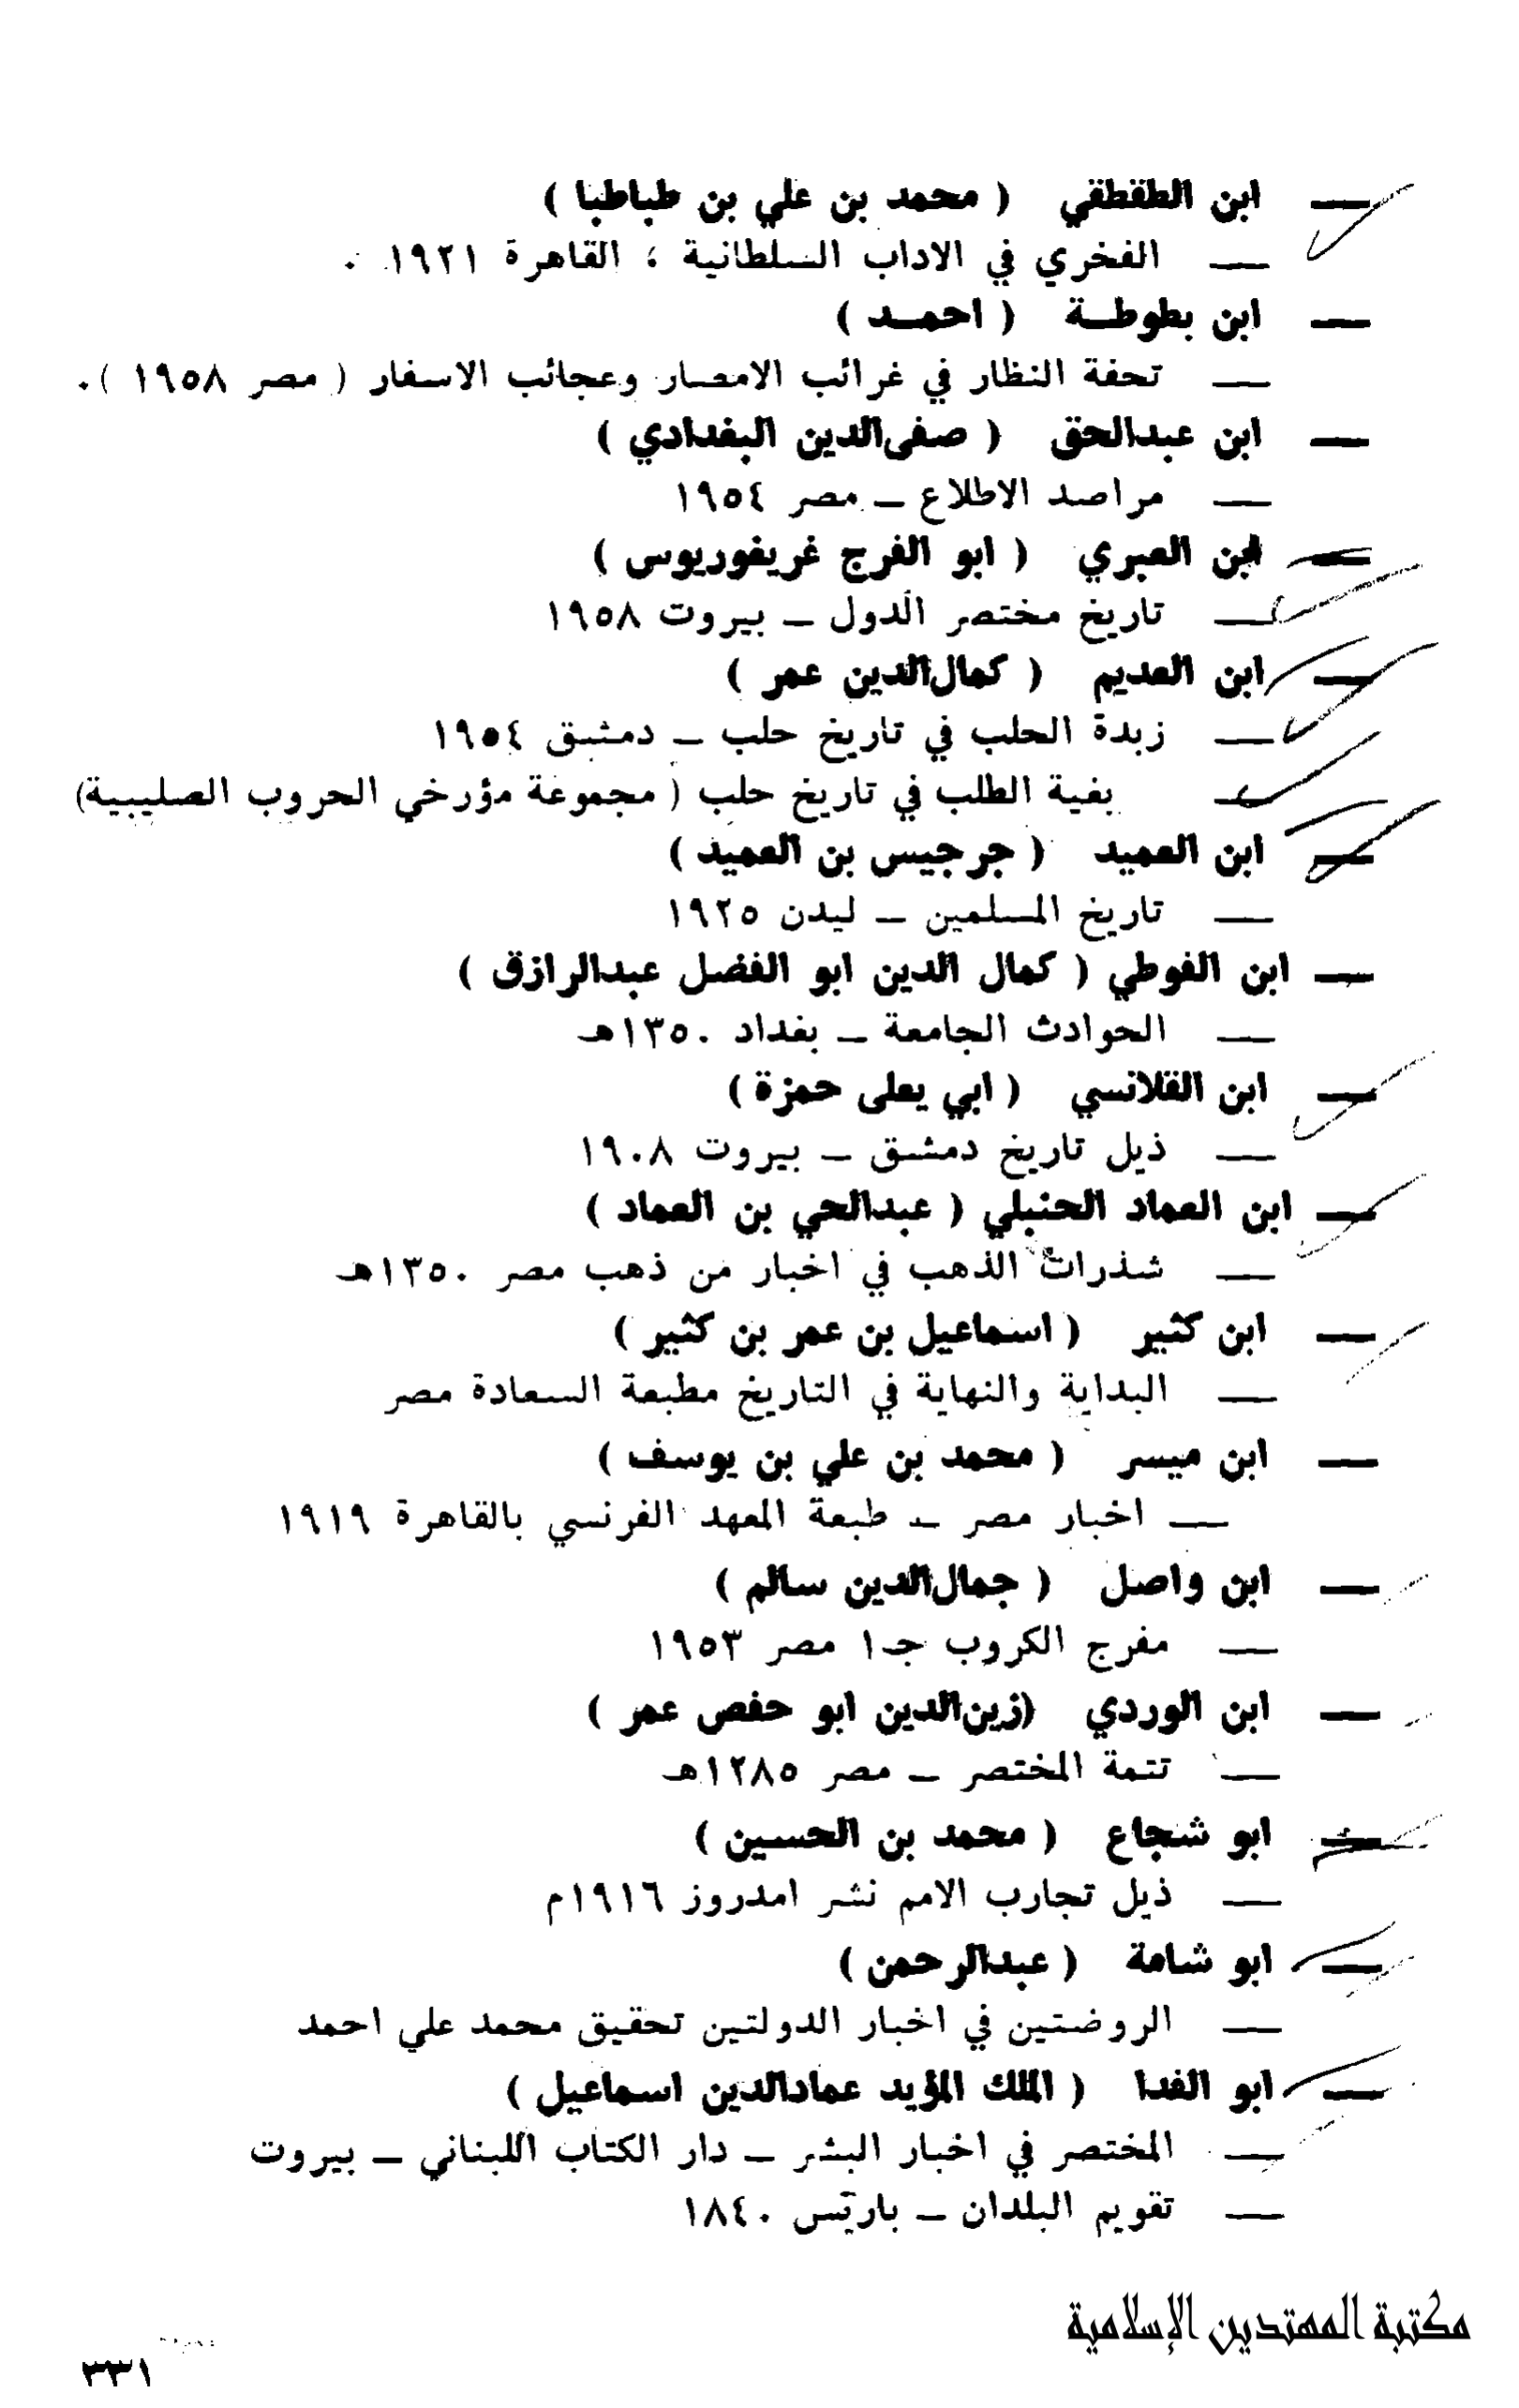 — ابن الطقطقي ( محمد بن علي بن طباطبا )
— الفخري في الاداب السلطانية ؛ القاهرة ١٩٢١ .
— ابن بطوطـة ( احمـد )
— تحفة النظار في غرائب الامصار وعجائب الاسفار ( مصر ١٩٥٨ ) .
— ابن عبدالحق ( صفى‌الدين البغدادي )
— مراصد الاطلاع – مصر ١٩٥٤
— ابن العبري ( ابو الفرج غريغوريوس )
— تاريخ مختصر الدول – بيروت ١٩٥٨
— ابن العديم ( كمال‌الدين عمر )
— زبدة الحلب في تاريخ حلب – دمشق ١٩٥٤
— بغية الطلب في تاريخ حلب ( مجموعة مؤرخي الحروب الصليبية)
— ابن العميد ( جرجيس بن العميد )
— تاريخ المسلمين – ليدن ١٩٢٥
— ابن الفوطي ( كمال الدين ابو الفضل عبدالرازق )
— الحوادث الجامعة – بغداد ١٣٥٠هـ
— ابن القلانسي ( ابي يعلى حمزة )
— ذيل تاريخ دمشق – بيروت ١٩٠٨
— ابن العماد الحنبلي ( عبدالحي بن العماد )
— شذرات الذهب في اخبار من ذهب مصر ١٣٥٠هـ
— ابن كثير ( اسماعيل بن عمر بن كثير )
— البداية والنهاية في التاريخ مطبعة السعادة مصر
— ابن ميسر ( محمد بن علي بن يوسف )
— اخبار مصر – طبعة المعهد الفرنسي بالقاهرة ١٩١٩
— ابن واصل ( جمال‌الدين سالم )
— مفرج الكروب جـ١ مصر ١٩٥٣
— ابن الوردي (زين‌الدين ابو حفص عمر )
— تتمة المختصر – مصر ١٢٨٥هـ
— ابو شجاع ( محمد بن الحسين )
— ذيل تجارب الامم نشر امدروز ١٩١٦م
— ابو شامة ( عبدالرحمن )
— الروضتين في اخبار الدولتين تحقيق محمد علي احمد
— ابو الفدا ( الملك المؤيد عمادالدين اسماعيل )
— المختصر في اخبار البشر – دار الكتاب اللبناني – بيروت
— تقويم البلدان – باريس ١٨٤٠
مكتبة المهتدين الإسلامية
٣٣١